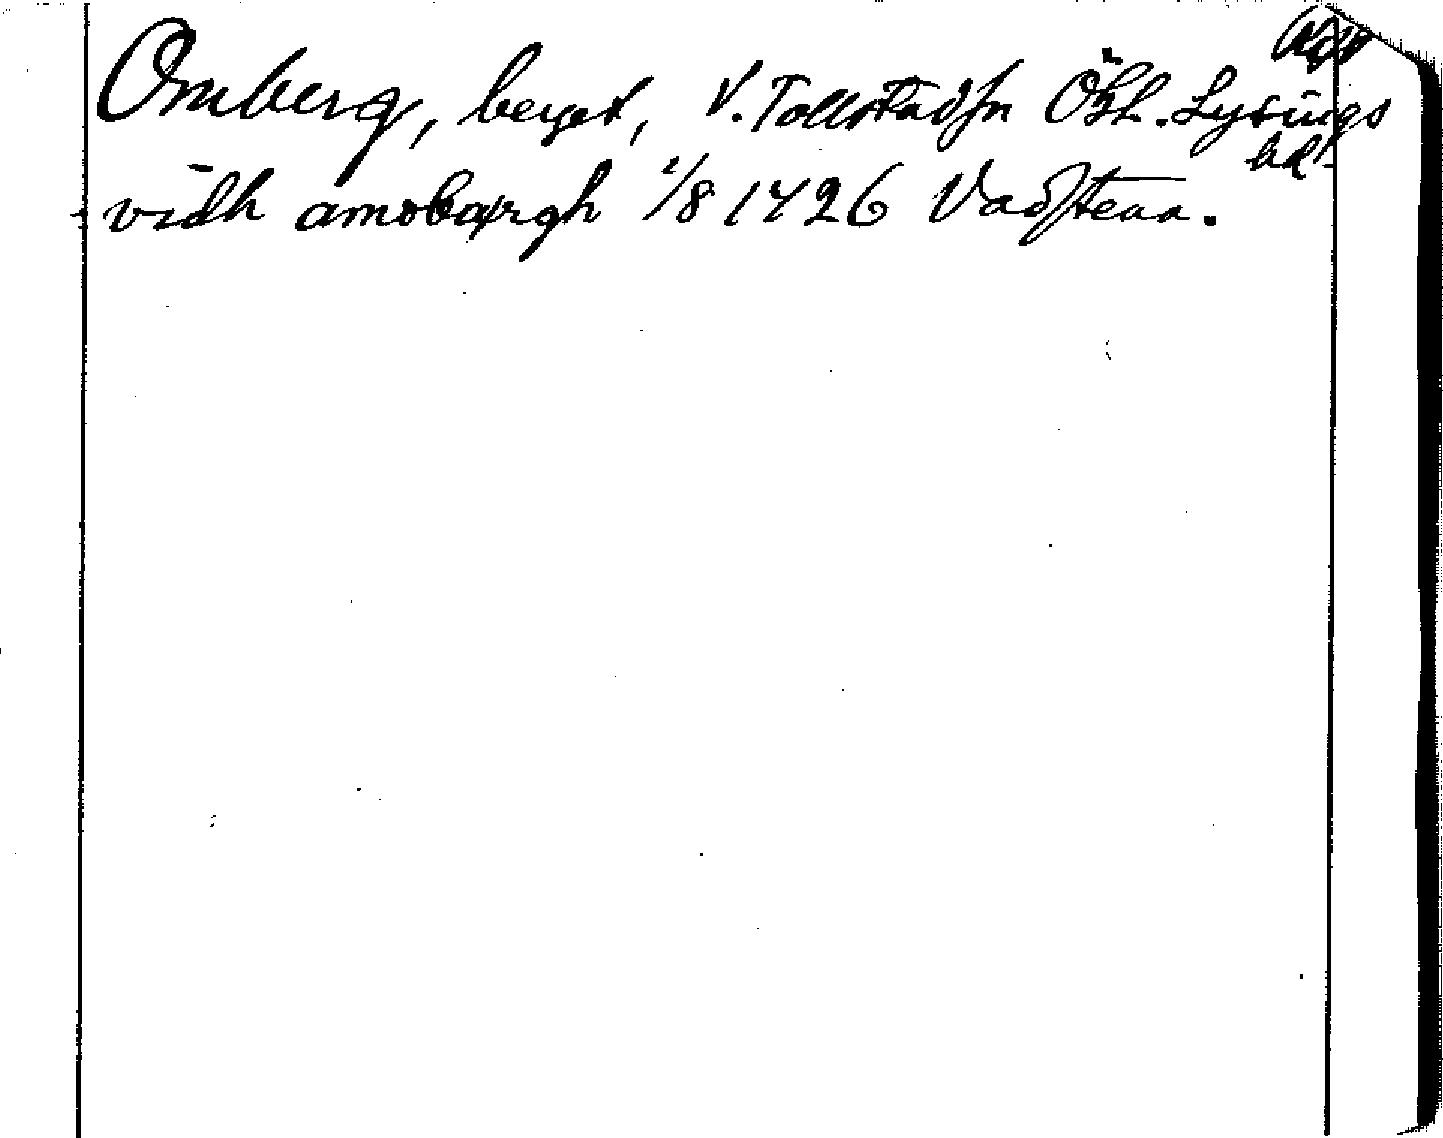 Omberg, berget, V. Tollstad sn Ögl. Lysings
hd.
vidh amobærgh 1/8 1426 Vadstena.